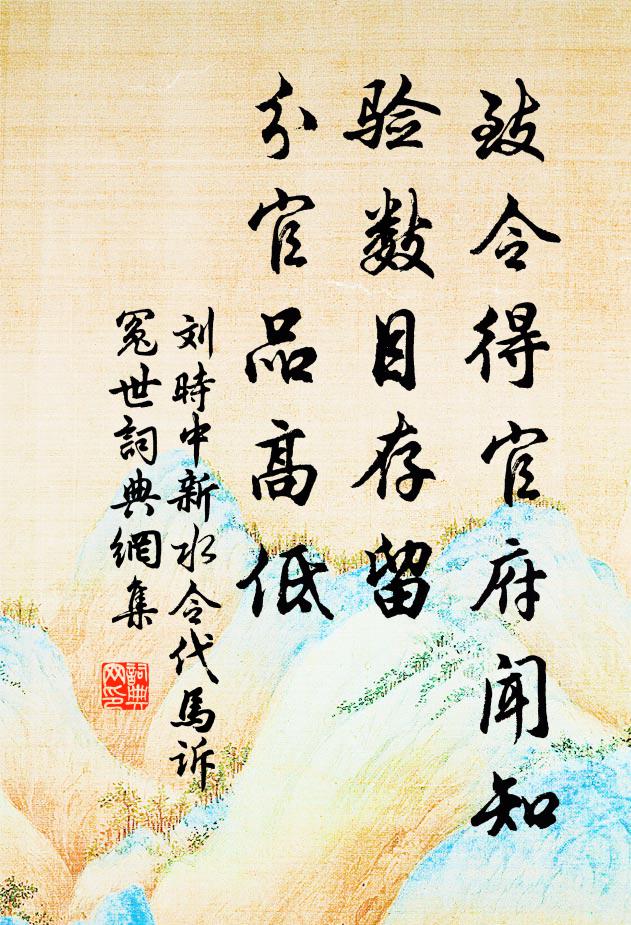 致令得官府闻知
验数目存留
分官品高低
刘時中新水令代馬诉
冤世詞典網集
詞典
网印